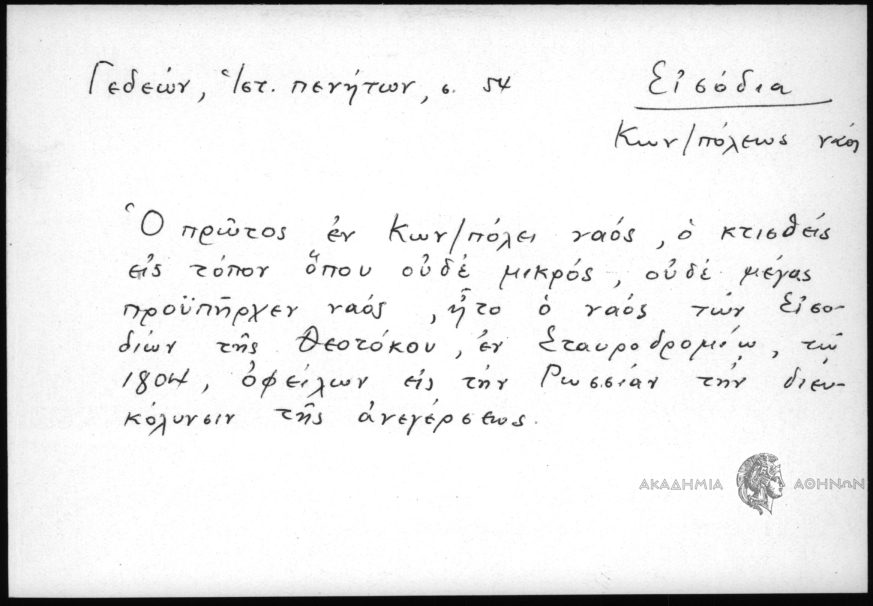 Γεδεών, Ἱστ. πενήτων, σ. 54
Εἰσόδια
Κων/πόλεως ναός
Ὁ πρῶτος ἐν Κων/πόλει ναός, ὁ κτισθείς
εἰς τόπον ὅπου οὐδέ μικρός, οὐδέ μέγας
προϋπῆρχεν ναός, ἦτο ὁ ναός τῶν Εἰσο-
δίων τῆς Θεοτόκου, ἐν Σταυροδρομίῳ, τῷ
1804, ὀφείλων εἰς τήν Ρωσσίαν τήν διευ-
κόλυνσιν τῆς ἀνεγέρσεως.
ΑΚΑΔΗΜΙΑ ΑΘΗΝΩΝ